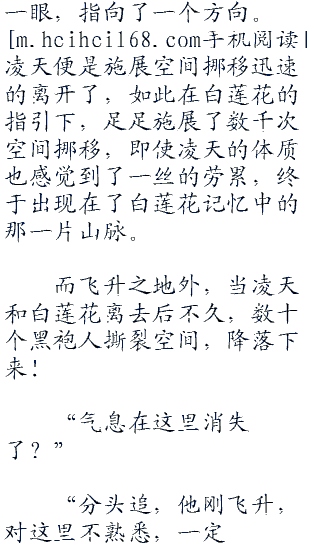 一眼，指向了一个方向。
[m.hcihcil68.com手机阅读|
凌天便是施展空间挪移迅速
的离开了，如此在白莲花的
指引下，足足施展了数千次
空间挪移，即使凌天的体质
也感觉到了一丝的劳累，终
于出现在了白莲花记忆中的
那一片山脉。
而飞升之地外，当凌天
和白莲花离去后不久，数十
个黑袍人撕裂空间，降落下
来！
“气息在这里消失
了？”
“分头追，他刚飞升，
对这里不熟悉，一定